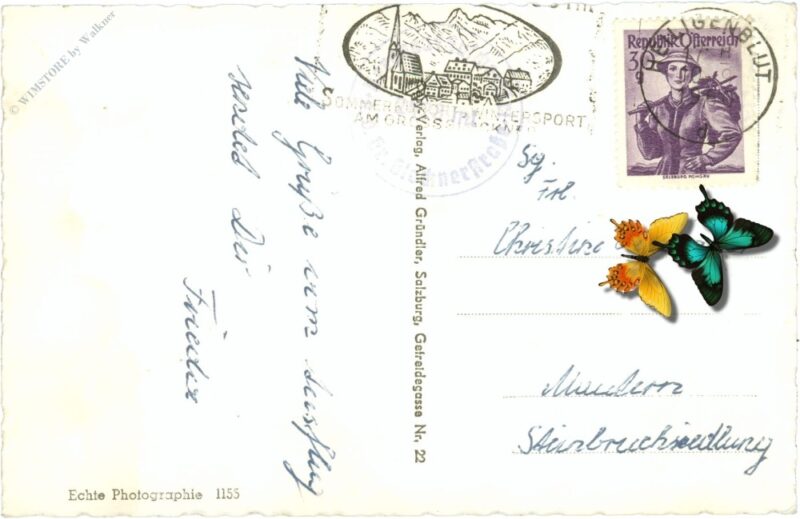 © WIMSTORE by Walkner
Viele Grüße vom Ausflug
sendet Dir
Friedix
Echte Photographie 1155
Verlag, Alfred Gründler, Salzburg, Getreidegasse Nr. 22
SOMMER WINTERSPORT
AM GROSSGLOCKNER
HEILIGENBLUT
Republik Österreich
3
SALZBURG PONGAU
Sg.
Frl.
Christine
Mautern
Steinbruchsiedlung